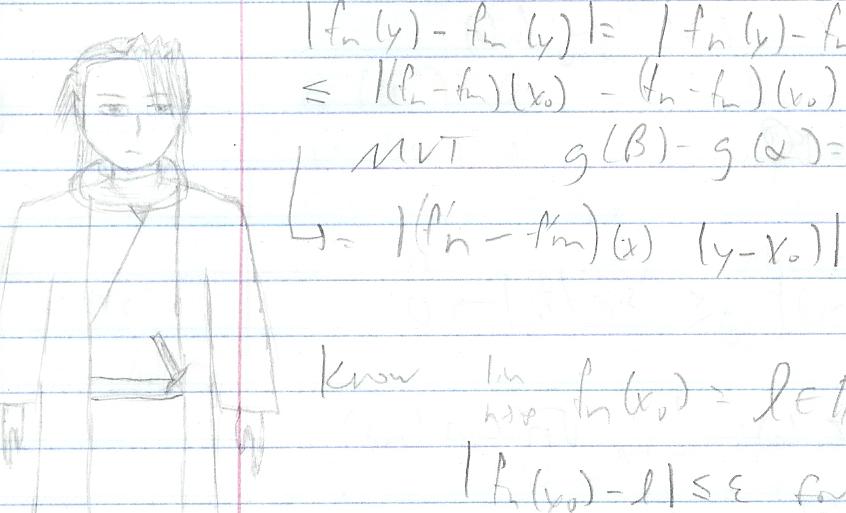 |fn(y) - fm(y)| = | fn(y) - f
≤ |(fn - fm)(x₀) - (fn - fm)(x₀)
MVT g(β) - g(α) =
↳ = |(f'n - f'm)(x) (y - x₀)|
Know lim n→∞ fn(x₀) = l ∈
|fn(x₀) - l| ≤ ε for